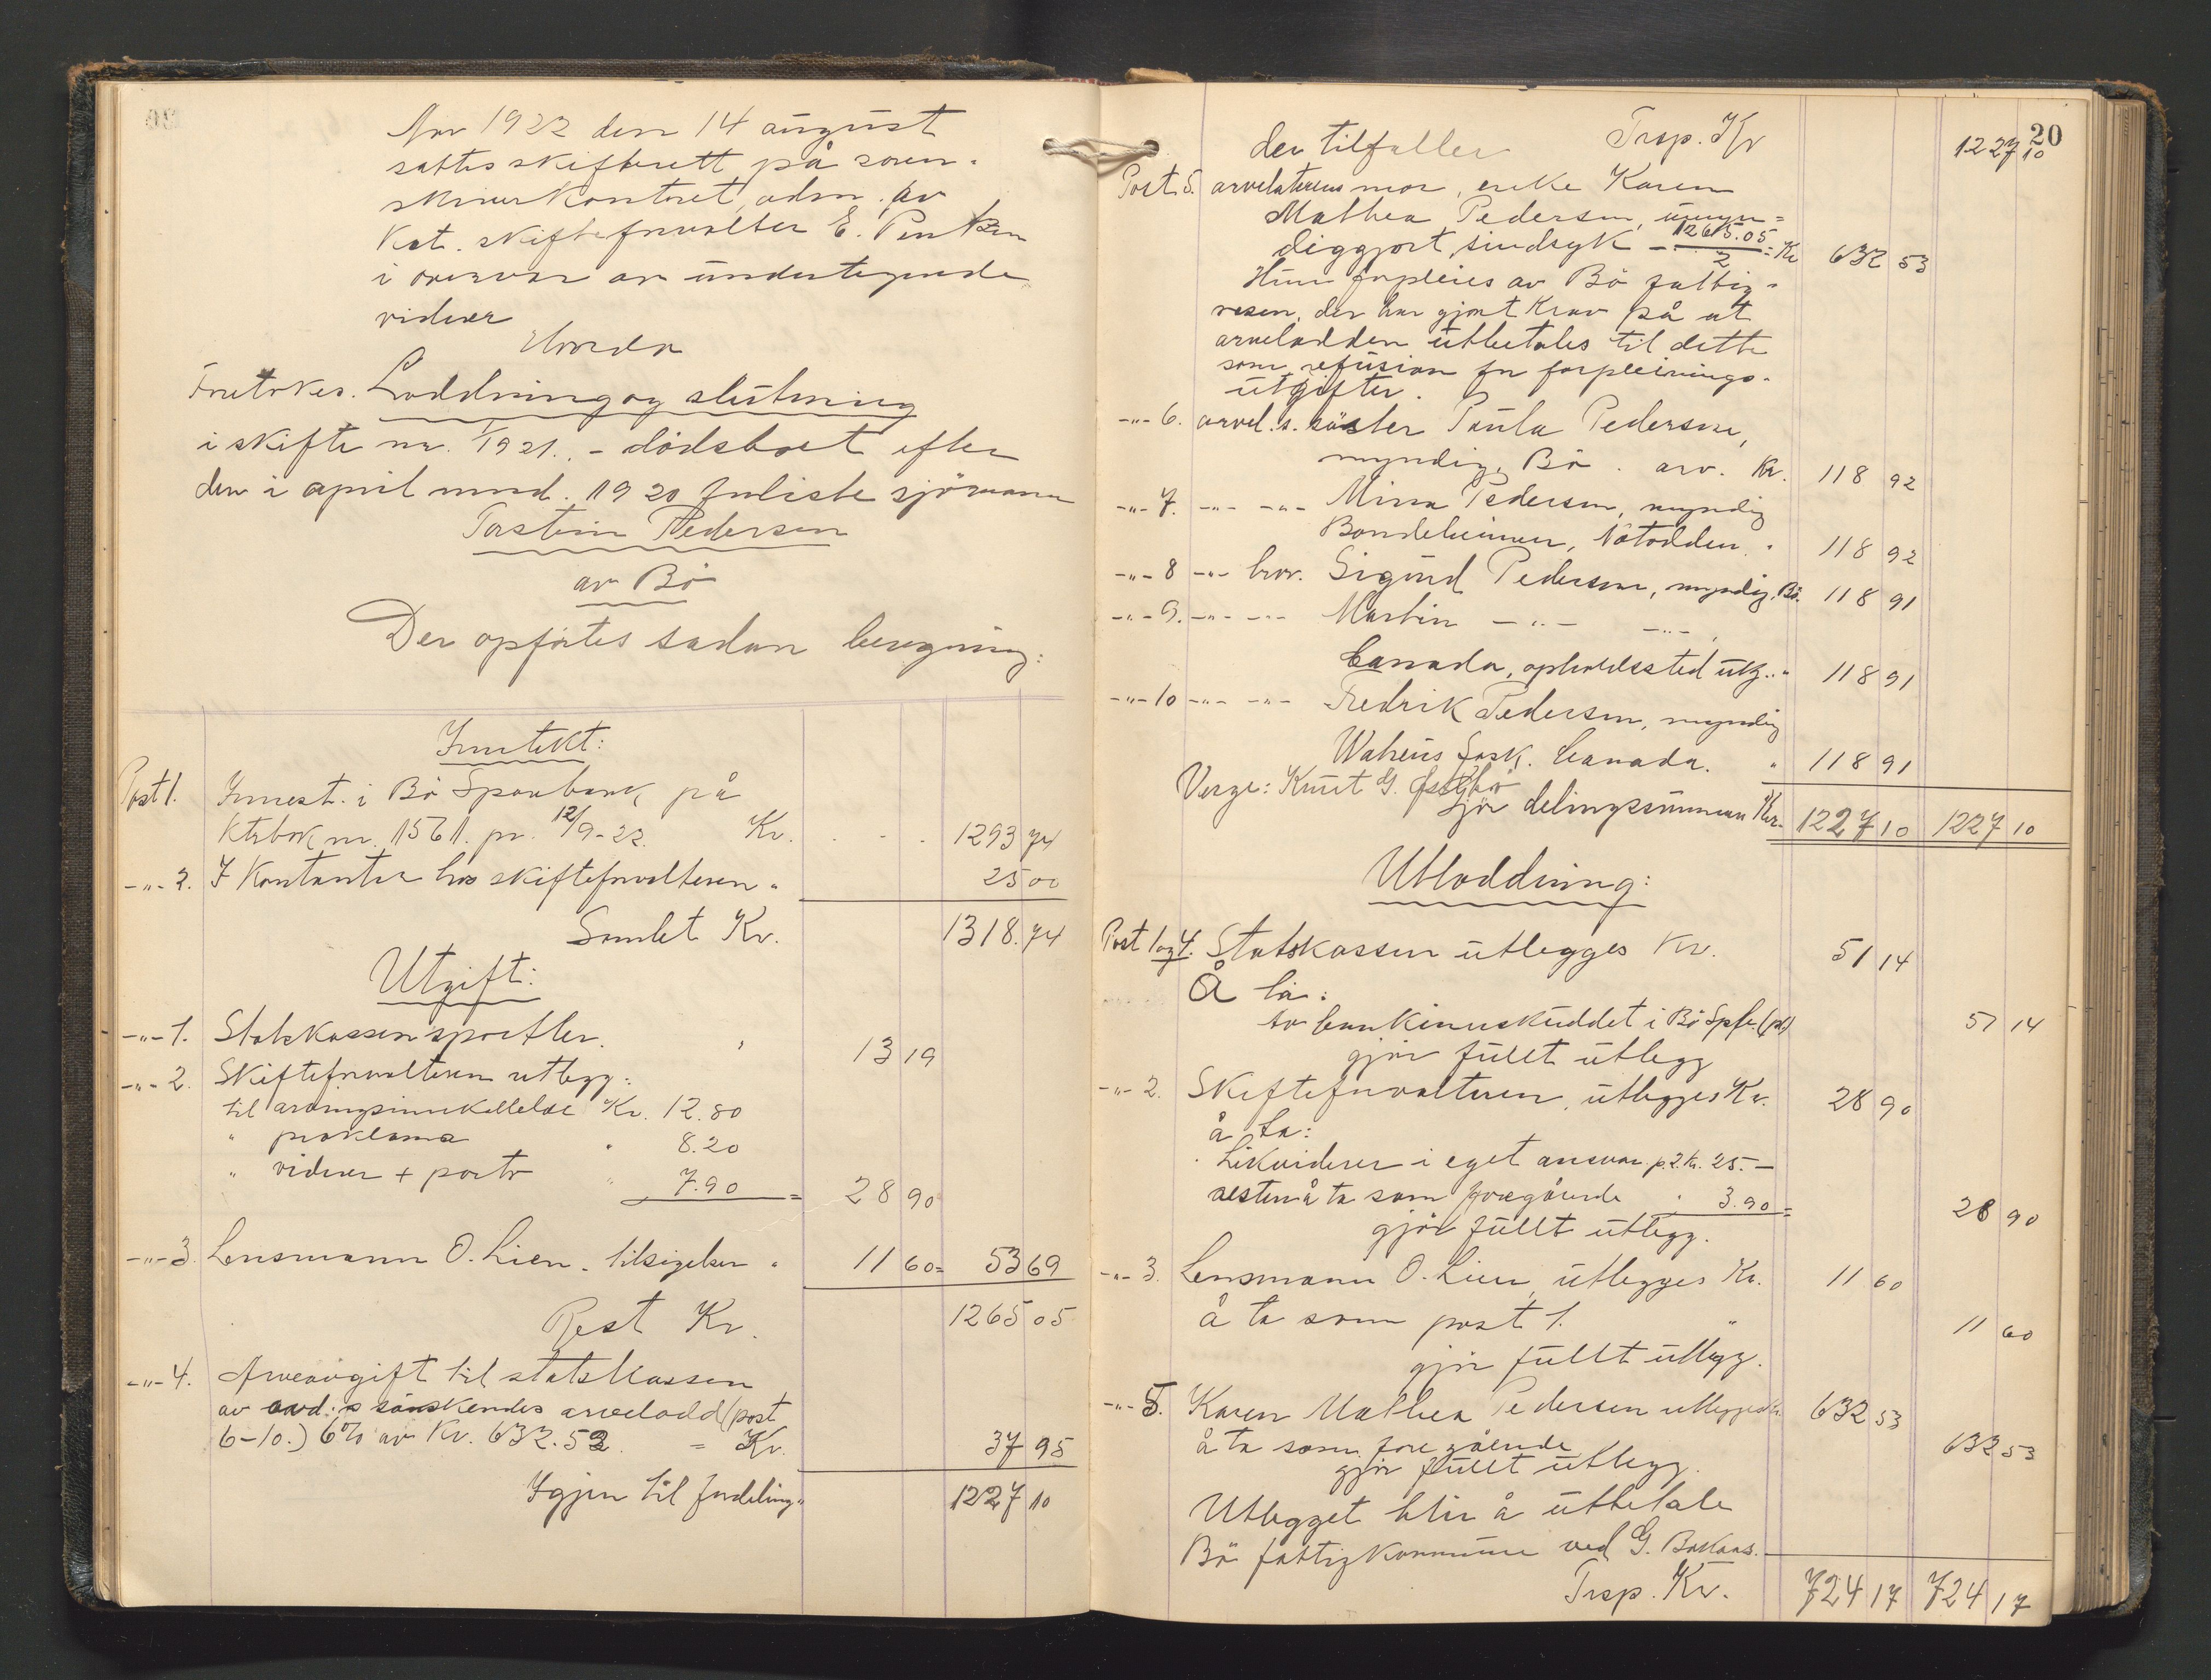 Aar 1922 den 14 august
sattes skifterett på soren-
skriverkontoret, adm. av
Kst. skifteforvalter E. Pentzen
i overvær av undertegnede
vidner
Hvorda
Foretokes. Loddning og slutning
i skifte nr. 1/1921. - dödsboet efter
den i april mnd. 1920 forliste sjömann
Torstein Pedersen
av Bö
Der opförtes sadan beregning:
Inntekt:
Post 1. Innest. i Bö Sparebank på
Ktrbok nr. 1561. pr. 12/9-22. Kr. 1293 74
-"- 2. I Kontanter hos skifteforvalteren " 25 00
Samlet Kr. 1318.74
Utgift:
-"- 1. Statskassen sportler. " 13 19
-"- 2. Skifteforvalteren utlegg:
til arvingsinnkallelse Kr. 12.80
" proklama " 8.20
" vidner + porto " 7.90 = 28 90
-"- 3 Lensmann O. Lien. tilsigelser " 11 60 = 53 69
Rest Kr. 1265 05
-"- 4. Arveavgift til statskassen
av avd.s söskendes arvelodd (post
6-10.) 6% av Kr. 632.52. = Kr. 37 95
Igjen til fordeling " 1227 10
20
der tilfaller Trsp. Kr 1227 10
Post. 5. arvelaterens mor, enke Karen
Mathea Pedersen, umyn=
diggjort, sindsyk - 1265.05/2 = Kr 632 53
Hun forpleies av Bö fattig-
vesen, der har gjort krav på at
arvelodden utbetales til dette
som refusion for forpleinings-
utgifter.
-"- 6. arvel.s. söster Paula Pedersen,
myndig, Bö. arv. Kr. 118 92
-"- 7. -"- -"- Minna Pedersen, myndig
Bondeheimen, Notodden. " 118 92
-"- 8 -"- bror. Sigurd Pedersen, myndig, Bö. 118 91
-"- 9. -"- -"- Martin -"- -"-,
Canada, opholdssted ukj. " 118 91
-"- 10 -"- -"- Fredrik Pedersen, myndig
Sask. Canada. " 118 91
Verge: Knut G. Østtbö
Gjör delingssummen Kr. 1227 10 1227 10
Utloddning:
Post 1 og 4. Statskassen utlegges Kr. 51 14
Å ta:
Av bankinnskuddet i Bö Spb. (p1) 51 14
gjör fullt utlegg
-"- 2. Skifteforvalteren, utlegges Kr. 28 90
å ta:
Likviderer i eget ansvar p. 2 Kr. 25.-
resten å ta som foregående " 3.90 = 28 90
gjör fullt utlegg.
-"- 3. Lensmann O. Lien, utlegges Kr. 11 60
å ta som post 1. " 11 60
gjör fullt utlegg.
-"- 5. Karen Mathea Pedersen utlegges Kr. 632 53
å ta som foregående 632 53
gjör fullt utlegg.
Utlegget blir å utbetale
Bö fattigkommune ved G. Bakkaas.
Trsp. Kr. 724 17 724 17